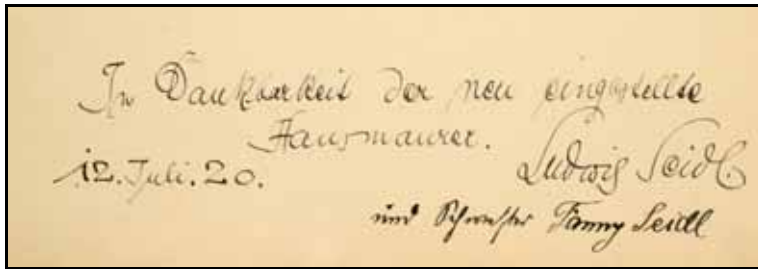 In Dankbarkeit der neu eingestellte
Hausmaurer.
12. Juli. 20. Ludwig Seidl.
und Schwester Fanny Seidl